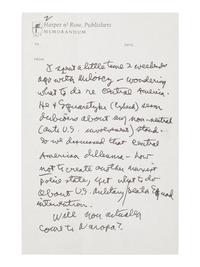 2
Harper & Row, Publishers
MEMORANDUM
TO: DATE:
FROM:
I spent a little time 2 weekends
ago with — wondering
what to do re Central America.
He & seem
dubious about any non-neutral
(anti U.S. involvement) stand.
So we discussed that Central
American dilemma – how
not to create another marxist
police state, yet what to do
about U.S. military/Death Squad
intervention.
Will you actually
come to Naropa?